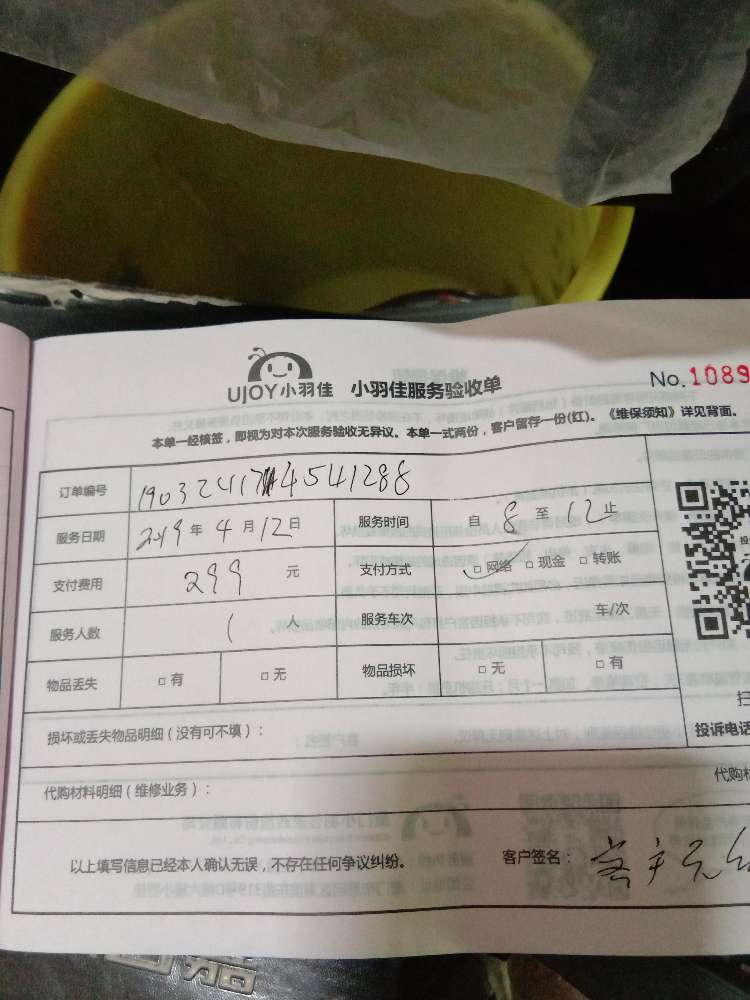 UJOY小羽佳 小羽佳服务验收单 No.1089
本单一经核签，即视为对本次服务验收无异议。本单一式两份，客户留存一份(红)。《维保须知》详见背面。
订单编号 190324174541288
服务日期 2019年4月12日 服务时间 自8至12止
支付费用 299元 支付方式 □网络 □现金 □转账
服务人数 1人 服务车次 车/次
物品丢失 □有 □无 物品损坏 □无 □有
损坏或丢失物品明细（没有可不填）：
扫
投诉电话
代购材料明细（维修业务）：
代购材
以上填写信息已经本人确认无误，不存在任何争议纠纷。 客户签名：